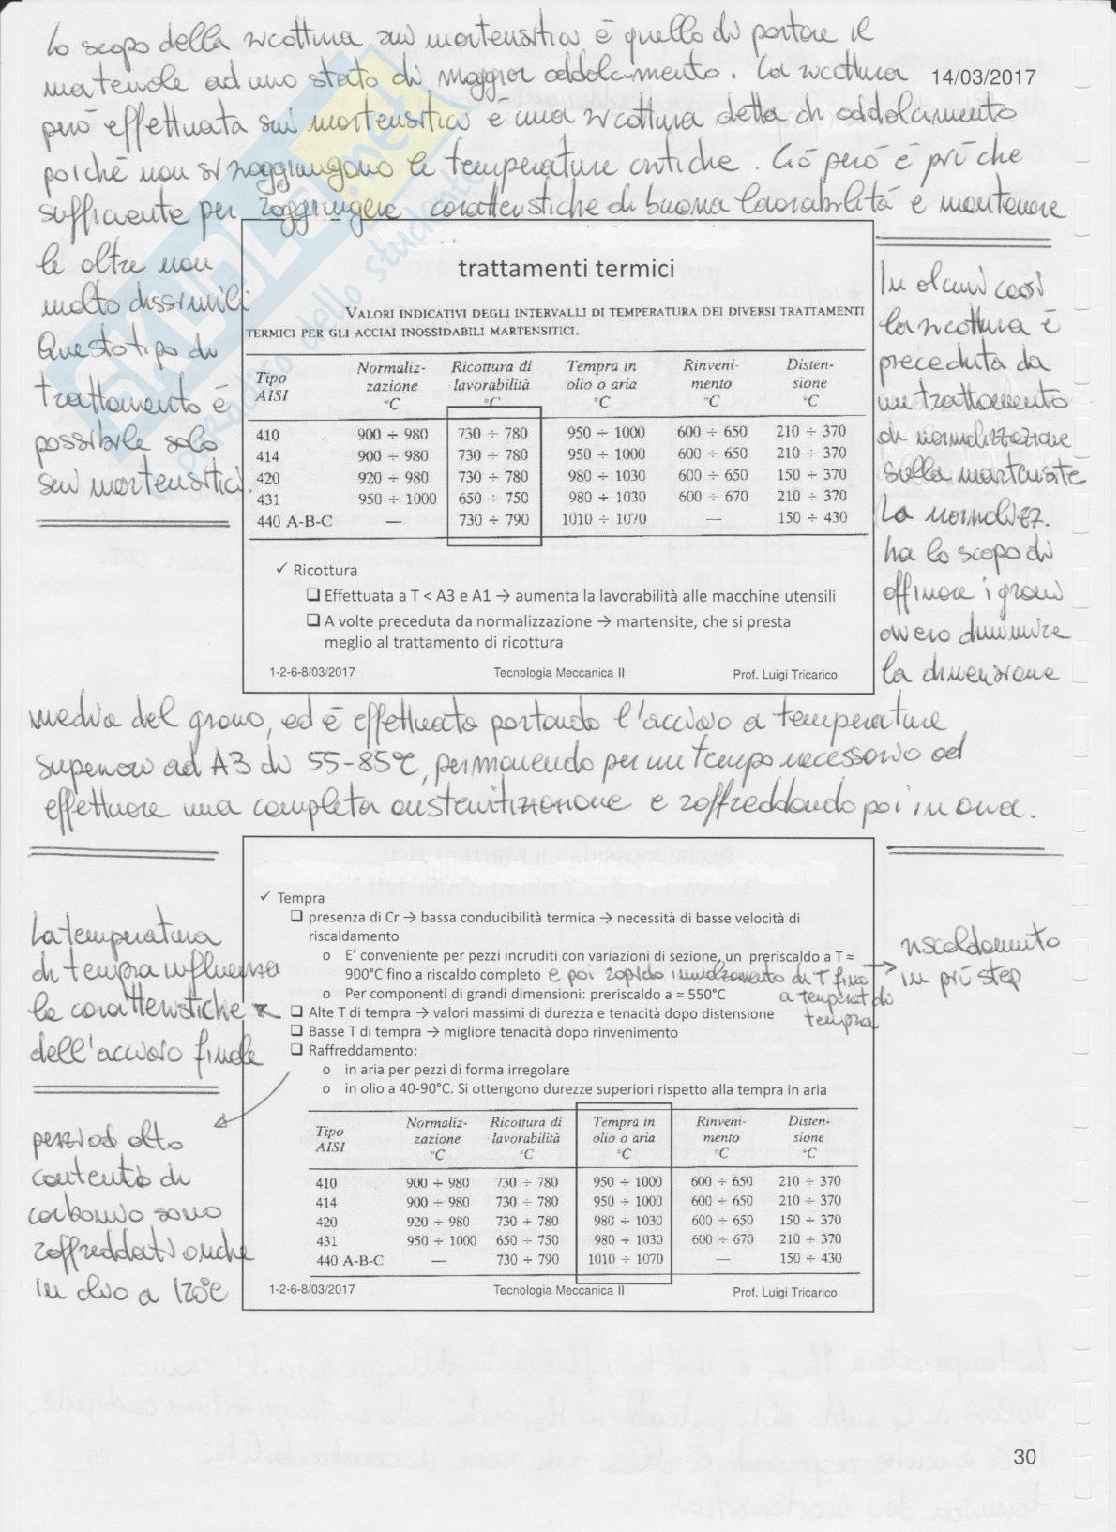 Lo scopo della ricottura sui martensitici è quello di portare il
materiale ad uno stato di maggior addolcimento. La ricottura
14/03/2017
però effettuata sui martensitici è una ricottura detta di addolcimento
poichè non si raggiungono le temperature critiche. Ciò però è più che
sufficiente per raggiungere caratteristiche di buona lavorabilità e mantenere
le altre non
molto dissimili.
Questo tipo di
trattamento è
possibile solo
sui martensitici.
SKUOLA.net
trattamenti termici
VALORI INDICATIVI DEGLI INTERVALLI DI TEMPERATURA DEI DIVERSI TRATTAMENTI
TERMICI PER GLI ACCIAI INOSSIDABILI MARTENSITICI.
Tipo AISI | Normaliz-zazione °C | Ricottura di lavorabilità °C | Tempra in olio o aria °C | Rinveni-mento °C | Disten-sione °C
410 900 ÷ 980 730 ÷ 780 950 ÷ 1000 600 ÷ 650 210 ÷ 370
414 900 ÷ 980 730 ÷ 780 950 ÷ 1000 600 ÷ 650 210 ÷ 370
420 920 ÷ 980 730 ÷ 780 980 ÷ 1030 600 ÷ 650 150 ÷ 370
431 950 ÷ 1000 650 ÷ 750 980 ÷ 1030 600 ÷ 670 210 ÷ 370
440 A-B-C — 730 ÷ 790 1010 ÷ 1070 — 150 ÷ 430
✓ Ricottura
❑ Effettuata a T < A3 e A1 → aumenta la lavorabilità alle macchine utensili
❑ A volte preceduta da normalizzazione → martensite, che si presta
meglio al trattamento di ricottura
1-2-6-8/03/2017 Tecnologia Meccanica II Prof. Luigi Tricarico
In alcuni casi
la ricottura è
preceduta da
un trattamento
di normalizzazione
sulla martensite
La normalizz.
ha lo scopo di
affinare i grani
ovvero diminuire
la dimensione
media del grano, ed è effettuata portando l'acciaio a temperature
superiori ad A3 di 55-85°C, permanendo per un tempo necessario ad
effettuare una completa austenitizzazione e raffreddando poi in aria.
✓ Tempra
❑ presenza di Cr → bassa conducibilità termica → necessità di basse velocità di
riscaldamento
o E' conveniente per pezzi incruditi con variazioni di sezione, un preriscaldo a T ≈
900°C fino a riscaldo completo e poi rapido innalzamento di T fino
a temperat. di
tempra
o Per componenti di grandi dimensioni: preriscaldo a ≈ 550°C
❑ Alte T di tempra → valori massimi di durezza e tenacità dopo distensione
❑ Basse T di tempra → migliore tenacità dopo rinvenimento
❑ Raffreddamento:
o in aria per pezzi di forma irregolare
o in olio a 40-90°C. Si ottengono durezze superiori rispetto alla tempra in aria
Tipo AISI | Normaliz-zazione °C | Ricottura di lavorabilità °C | Tempra in olio o aria °C | Rinveni-mento °C | Disten-sione °C
410 900 ÷ 980 730 ÷ 780 950 ÷ 1000 600 ÷ 650 210 ÷ 370
414 900 ÷ 980 730 ÷ 780 950 ÷ 1000 600 ÷ 650 210 ÷ 370
420 920 ÷ 980 730 ÷ 780 980 ÷ 1030 600 ÷ 650 150 ÷ 370
431 950 ÷ 1000 650 ÷ 750 980 ÷ 1030 600 ÷ 670 210 ÷ 370
440 A-B-C — 730 ÷ 790 1010 ÷ 1070 — 150 ÷ 430
1-2-6-8/03/2017 Tecnologia Meccanica II Prof. Luigi Tricarico
riscaldamento
in più step
La temperatura
di tempra influenza
le caratteristiche
dell'acciaio finale
pezzi ad alto
contenuto di
carbonio sono
raffreddati anche
in olio a 120°C
30